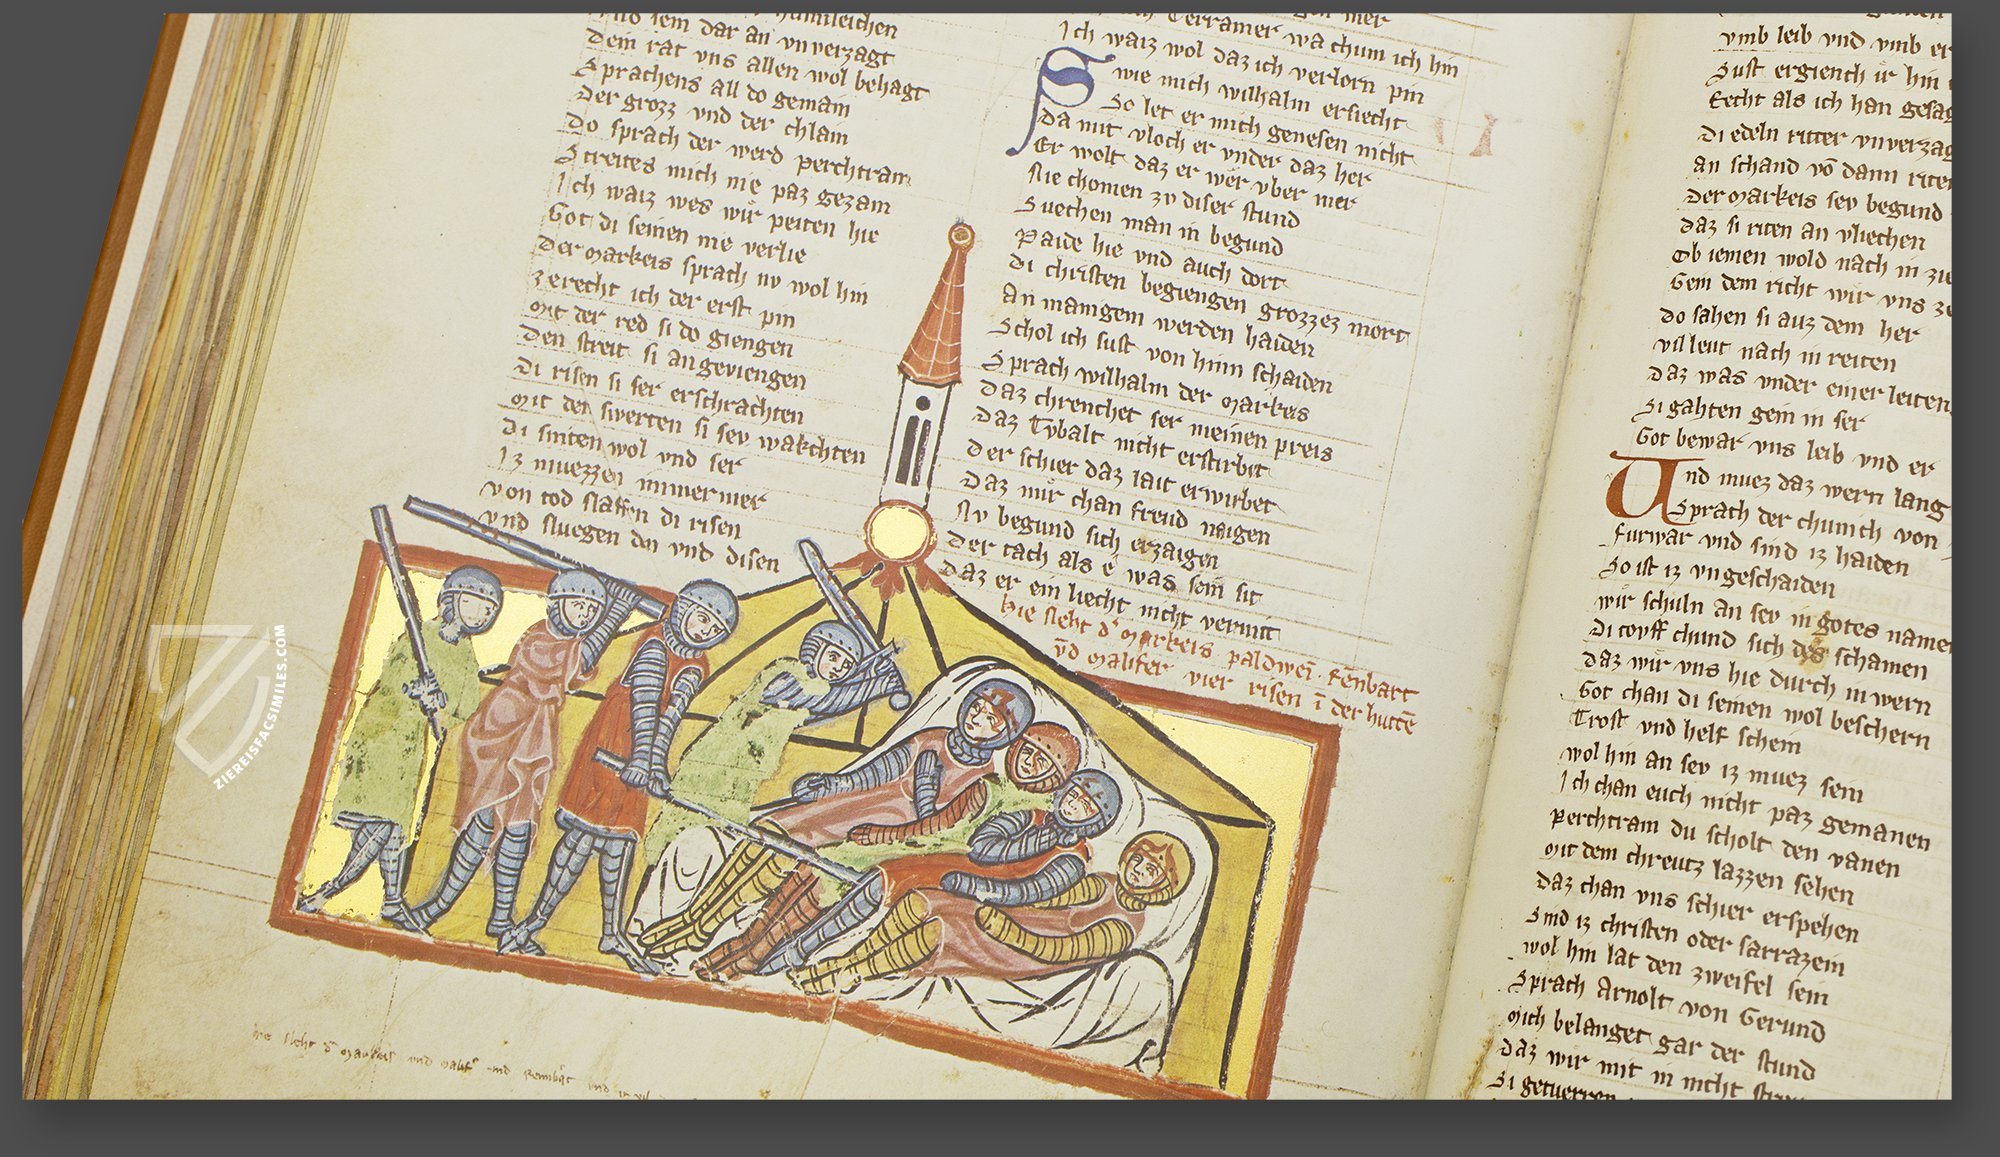 sem dar an vnverzagt
Dein rat vns allen wol behagt
Sprachens all do gemain
Der grozz vnd der chlain
Do sprach der werd perchtram
Streites mich nie paz gezam
Ich waiz wes wir peiten hie
Got di seinen nie verlie
Der Markeis sprach nv wol hin
zerecht ich der erst pin
Mit der red si do giengen
Den streit si angeviengen
Di risen si ser erschrachten
Mit den swerten si sev wakchten
Di sniten wol vnd ser
Iz muezzen immermer
von tod slaffen di risen
vnd sluegen den vnd disen
Terramer wa chum ich hin
Ich waiz wol daz ich verlorn pin
Swie mich wilhalm ersiecht
So let er mich genesen nicht
Da mit vloch er vnder daz her
Er wolt daz er wer vber mer
Nie chomen zv diser stund
Suechen man in begund
Paide hie vnd auch dort
Di christen begiengen grozzez mort
An manigem werden haiden
Schol ich sust von hinn schaiden
Sprach wilhalm der Markeis
Daz chrenchet ser meinen preis
Daz Tybalt nicht erstirbit
Der schier daz lait erwirbet
Daz mir chan freud naigen
Nv begund sich erzaigen
Der tach als e was sein sit
Daz er ein liecht nicht vermit
Hie sleht dˢ Markeis paldweī. Rēnbart
vn̄d Malifer vier risen ī der huttē
hie sleht dˢ Markeis vnd Malifˢ vnd Rennbart vnd
vmb leib vnd vmb er
Sust ergiench ir hin
Recht als ich han gesag
Di edeln ritter vnverzag
an schand vō dann riten
Der Markeis sev begund
Daz si riten an vliechen
Ob iemen wold nach in zie
Gem dem richt wir vns ze
Do sahen si auz dem her
vil leut nach in reiten
Daz was vnder einer leiten
Si gahten gein in ser
Got bewar vns leib vnd er
Vnd muez daz wern lang
Sprach der chunich von
furwar vnd sind iz haiden
So ist iz vngeschaiden
wir schuln an sev in gotes namen
Di toyff chund sich des schamen
Daz wir vns hie durch in wern
Got chan di seinen wol beschern
Trost vnd helf schein
wol hin an sev iz muez sein
Ich chan euch nicht paz gemanen
Perchtram du scholt den vanen
Mit dem chreutz lazzen sehen
Daz chan vns schier erspehen
Sind iz christen oder sarrazein
wol hin lat den zweifel sein
Sprach Arnolt von Gerund
Mich belanget gar der stund
Daz wir mit in nicht
Si getuerren
ZIEREISFACSIMILES.COM